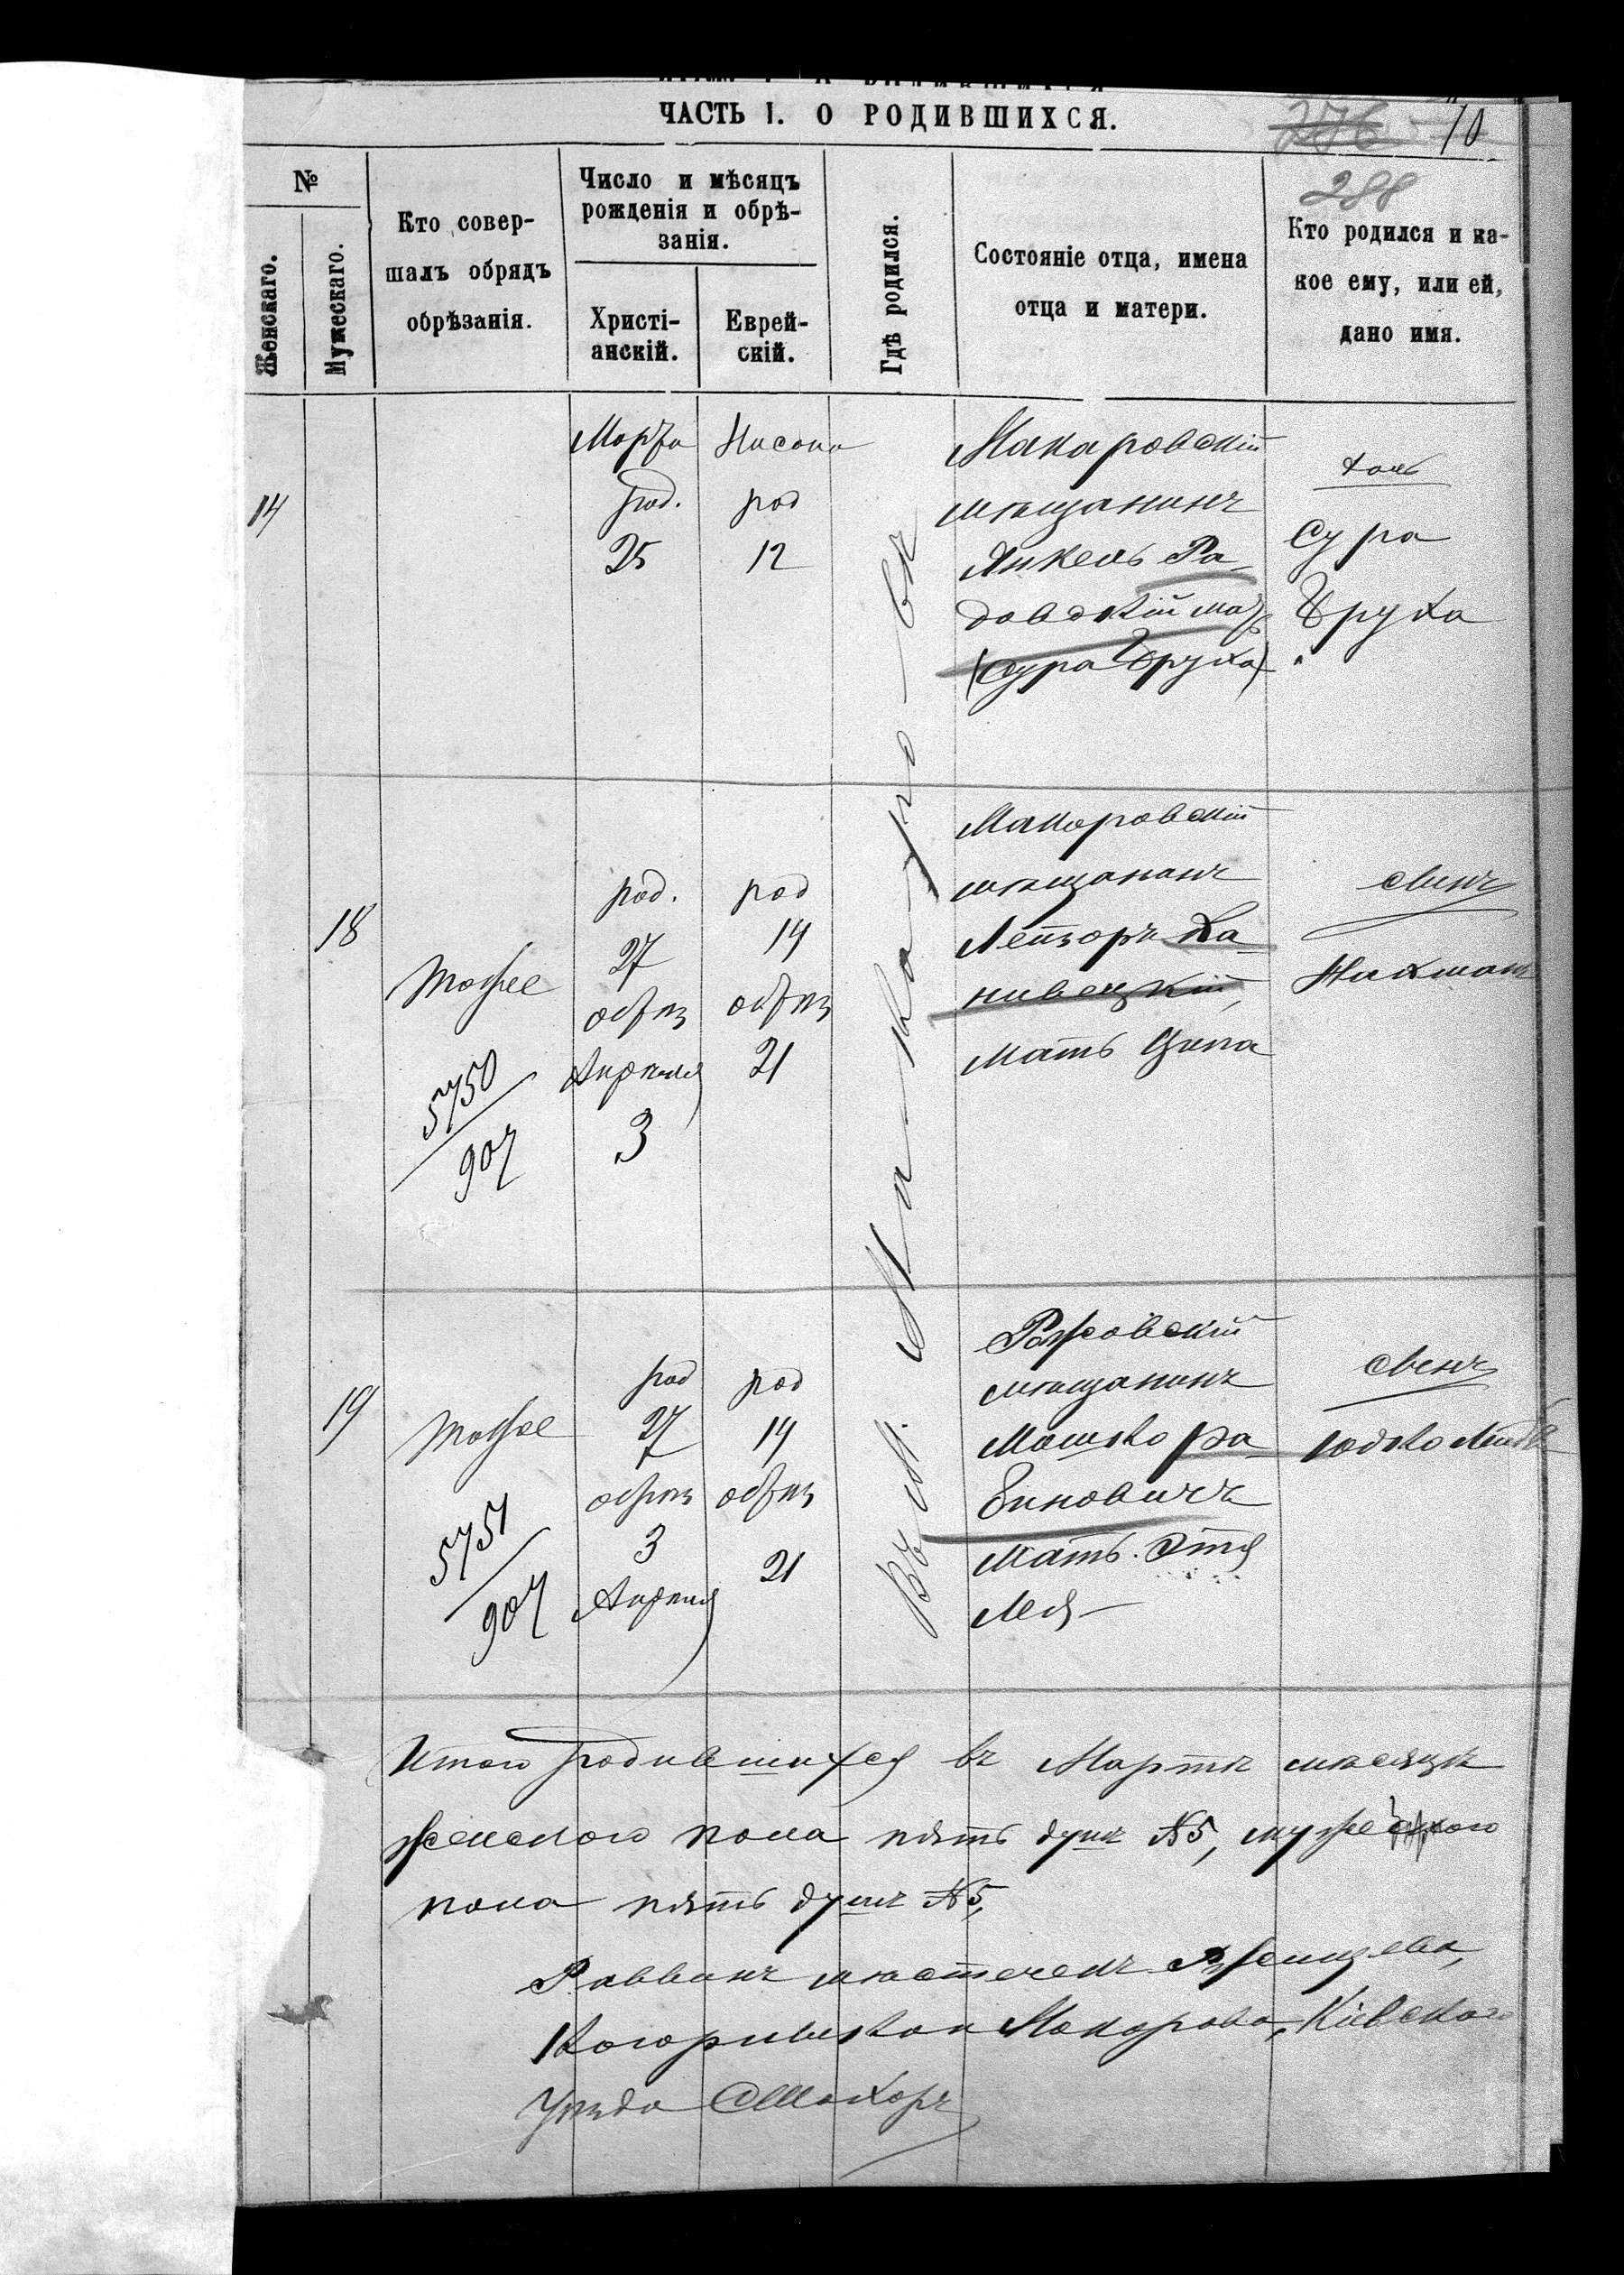 ЧАСТЬ I. О РОДИВШИХСЯ.
276
70
288
№
Женскаго.
Мужескаго.
Кто совер-
шалъ обрядъ
обрѣзанія.
Число и мѣсяцъ
рожденія и обрѣ-
занія.
Христі-
анскій.
Еврей-
скій.
Гдѣ родился.
Состояніе отца, имена
отца и матери.
Кто родился и ка-
кое ему, или ей,
дано имя.
14
Марта
род.
25
Нисона
род
12
Въ м. Макарово-въ
Макаровскій
мѣщанинъ
Янкель Ра-
довскій мать
(Сура Бруха)
дочь
Сура
Бруха
18
Мошко
5750
907
род.
27
обрѣз
Апрѣля
3
род
14
обрѣз
21
Макаровскій
мѣщанинъ
Лейзоръ Ка-
нивецкій,
Мать Ципа
сынъ
Нахманъ
19
Мошко
5751
907
род
27
обрѣз
3
Апрѣля
род
14
обрѣз
21
мѣщанинъ
Мошко Ра-
биновичъ
Мать Этя
Лея
сынъ
Юдко Лейб
Итого родившихся въ Мартѣ мѣсяцѣ
женского пола пять душъ №5, мужеского
пола пять душъ №5,
Раввинъ мѣстечекъ Ржищева,
Кагарлыка и Макарова, Кіевского
Уѣзда